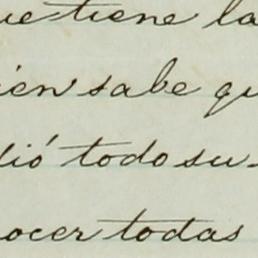 ue tiene la
ien sabe qu
dió todo su
nocer todas